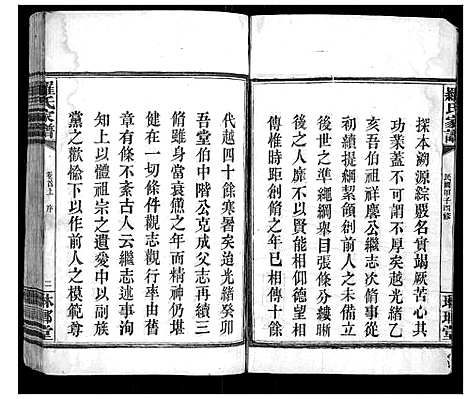 羅氏家譜
民國甲子四修
琳瑯堂
探本溯源綜覈名實竭厥苦心其
功業蓋不可謂不厚矣越光緒乙
亥吾伯祖祥慶公繼志次前修之
初續提綱絜領創前人之未備立
後世之準繩綱舉目張條分縷晰
俾後之人靡不以賢能相仰德望相
傳惟時距創脩之年已相
代越四十餘寒暑矣迨光緒癸卯
吾堂伯中階公克成父志再續三
脩雖身當衰憊之年而精神仍堪
健在一切條件觀志觀行率由舊
章有條不紊古人云繼志述事洵
足以上體祖宗之遺愛中以治鄉
黨之歡愉下以作前人之模範尊
羅氏家譜
卷首上 序
二
琳瑯堂